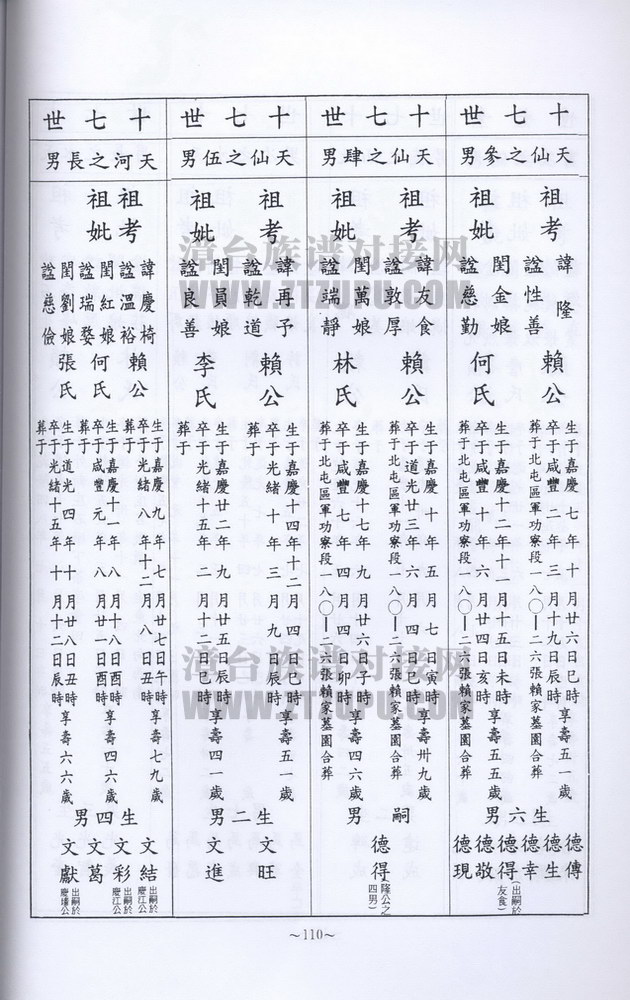 十七世
天仙之參男
祖考
諱隆
諡性善
賴公
生于嘉慶七年十月廿六日巳時
卒于咸豐三年三月十九日辰時 享壽五一歲
葬于北屯區軍功寮段一八〇—二六張賴家墓園合葬
祖妣
閨金娘
諡慈勤
何氏
生于嘉慶十二年十二月十五日未時
卒于咸豐十年六月廿四日亥時 享壽五五歲
葬于北屯區軍功寮段一八〇—二六張賴家墓園合葬
生六男
德傳
德生
德幸
德得(出嗣於友食)
德敬
德現
十七世
天仙之肆男
祖考
諱友食
諡敦厚
賴公
生于嘉慶十年五月七日寅時
卒于道光廿三年六月四日巳時 享壽卅九歲
葬于北屯區軍功寮段一八〇—二六張賴家墓園合葬
祖妣
閨萬娘
諡端靜
林氏
生于嘉慶十七年九月廿六日子時
卒于咸豐七年四月四日卯時 享壽四六歲
葬于北屯區軍功寮段一八〇—二六張賴家墓園合葬
嗣男
德得(隆公之四男)
十七世
天仙之伍男
祖考
諱再予
諡乾道
賴公
生于嘉慶十四年十二月四日巳時
卒于光緒十年三月九日辰時 享壽五一歲
葬于
祖妣
閨員娘
諡良善
李氏
生于嘉慶廿二年九月廿五日辰時
卒于光緒十五年二月十二日巳時 享壽四一歲
葬于
生二男
文旺
文進
十七世
天河之長男
祖考
諱慶椅
諡溫裕
賴公
生于嘉慶九年七月廿七日午時
卒于光緒八年十二月八日丑時 享壽七九歲
葬于
祖妣
閨紅娘
諡瑞婺
何氏
生于嘉慶十一年八月十八日酉時
卒于咸豐元年八月廿一日酉時 享壽四六歲
葬于
閨劉娘
諡慈儉
張氏
生于道光四年十月廿八日丑時
卒于光緒十五年十月十二日辰時 享壽六六歲
葬于
生四男
文結 出嗣於慶江公
文彩 出嗣於慶江公
文萬
文獻 出嗣於慶墻公
~110~
漳台族谱对接网
WWW.ZTZUPU.COM
漳台族谱对接网
WWW.ZTZUPU.COM